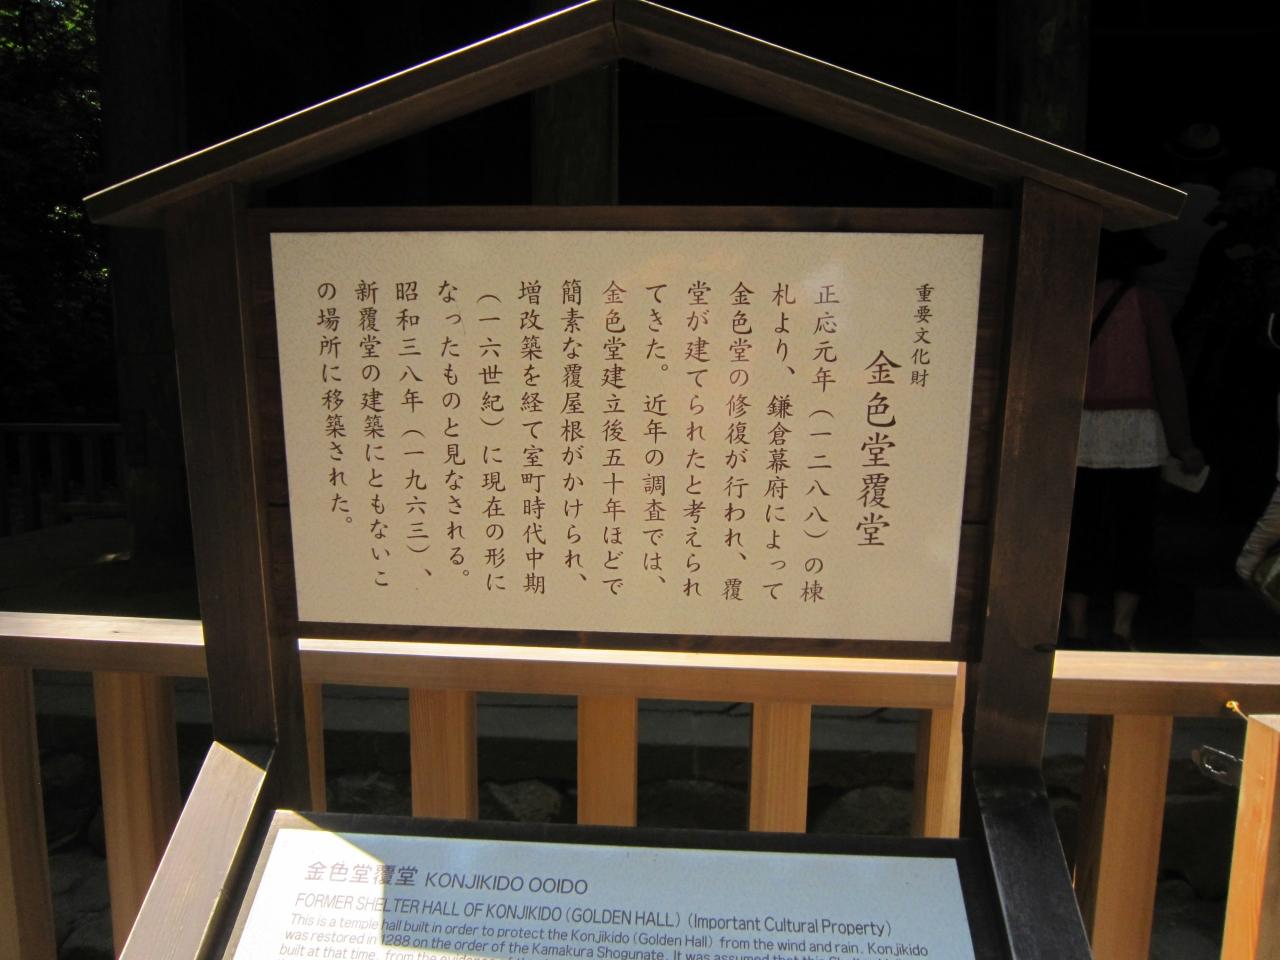 重要文化財
金色堂覆堂
正応元年（一二八八）の棟
札より、鎌倉幕府によって
金色堂の修復が行われ、覆
堂が建てられたと考えられ
てきた。近年の調査では、
金色堂建立後五十年ほどで
簡素な覆屋根がかけられ、
増改築を経て室町時代中期
（一六世紀）に現在の形に
なったものと見なされる。
昭和三八年（一九六三）、
新覆堂の建築にともないこ
の場所に移築された。
金色堂覆堂 KONJIKIDO OOIDO
FORMER SHELTER HALL OF KONJIKIDO (GOLDEN HALL) (Important Cultural Property)
This is a temple hall built in order to protect the Konjikido (Golden Hall) from the wind and rain. Konjikido
was restored in 1288 on the order of the Kamakura Shogunate. It was assumed that this
built at that time, from the